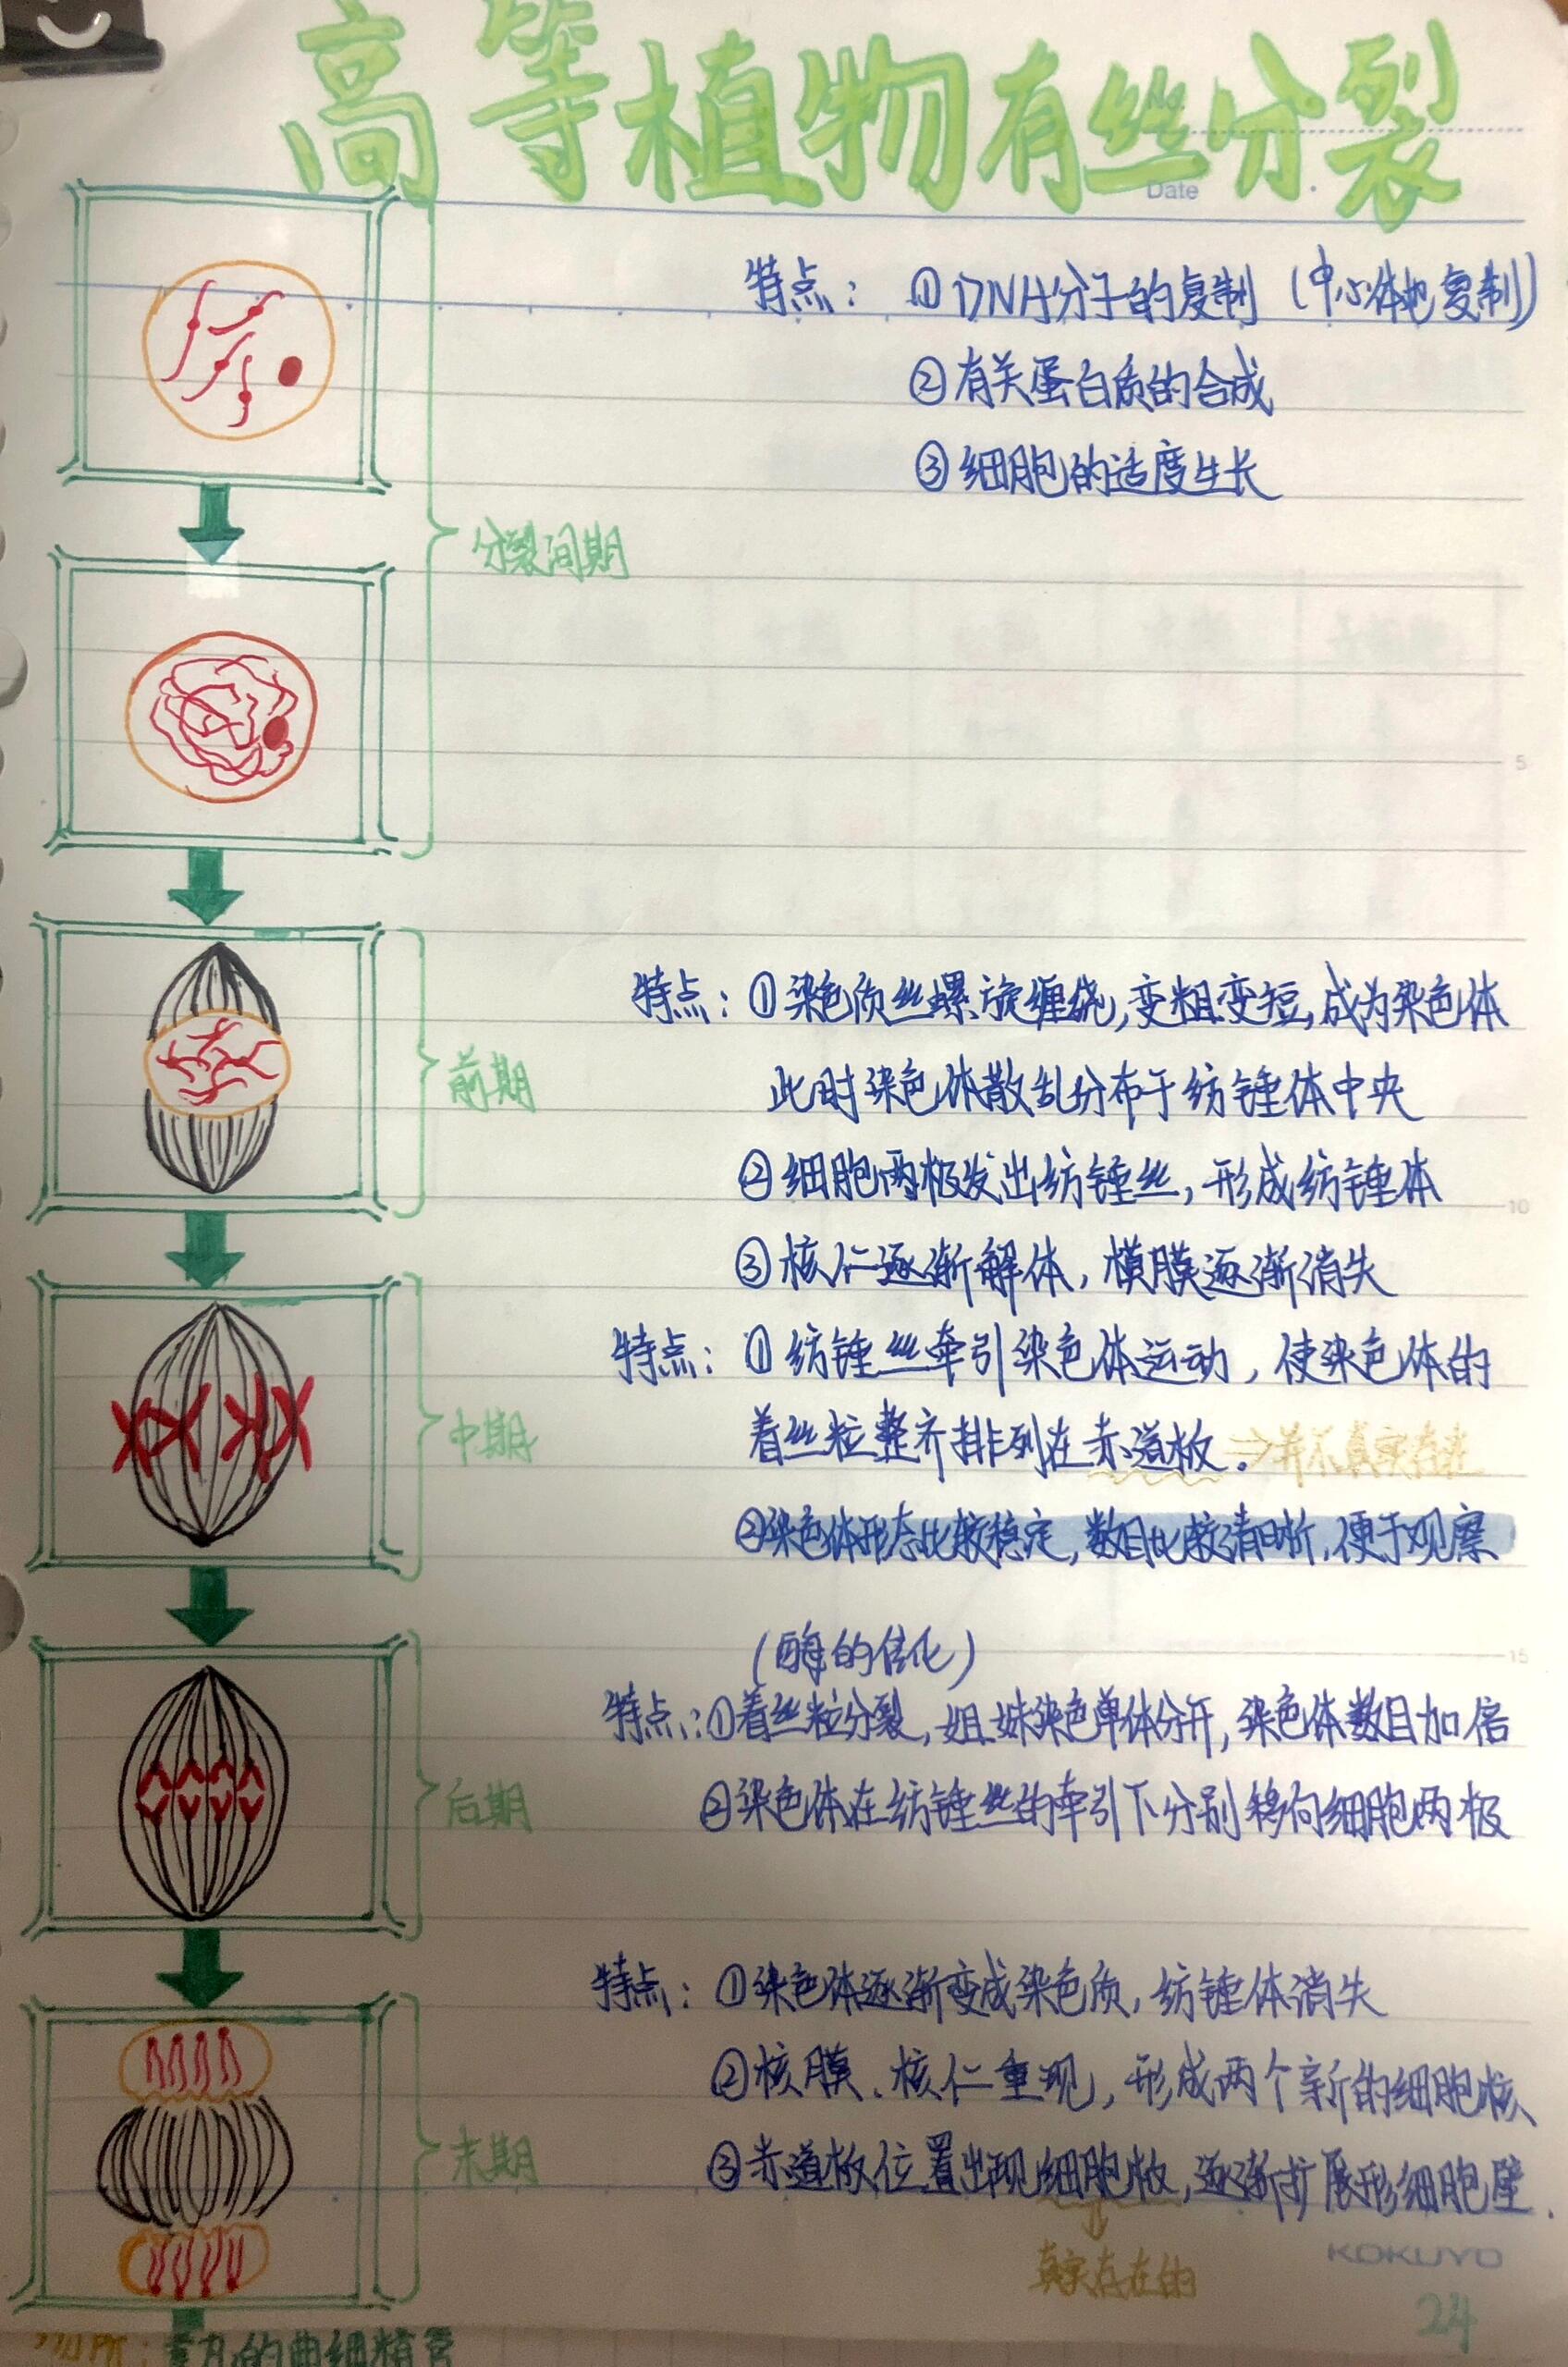 高等植物有丝分裂
No.
Date
特点：①DNA分子的复制（中心体也复制）
②有关蛋白质的合成
③细胞的适度生长
分裂间期
5
特点：①染色质丝螺旋缠绕,变粗变短,成为染色体
此时染色体散乱分布于纺锤体中央
前期
②细胞两极发出纺锤丝,形成纺锤体
10
③核仁逐渐解体,模膜逐渐消失
特点：①纺锤丝牵引染色体运动,使染色体的
着丝粒整齐排列在赤道板.⇒并不真实存在
中期
②染色体形态比较稳定,数目比较清晰,便于观察
(酶的催化)
15
特点:①着丝粒分裂,姐妹染色单体分开,染色体数目加倍
②染色体在纺锤丝的牵引下分别移向细胞两极
后期
特点：①染色体逐渐变成染色质,纺锤体消失
②核膜、核仁重现,形成两个新的细胞核
③赤道板位置出现细胞板,逐渐扩展形细胞壁.
末期
真实存在的
KOKUYO
24
的曲细精管